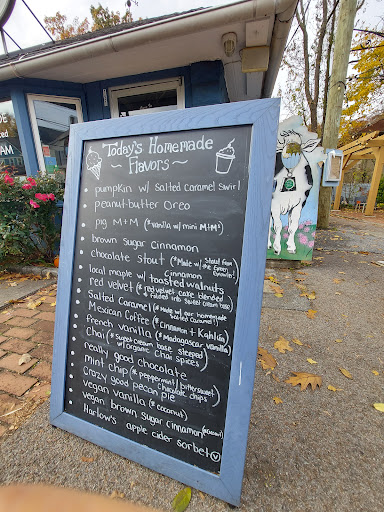 Today's Homemade
Flavors
pumpkin w/ salted caramel swirl
peanutbutter Oreo
pig M+M (*vanilla w/ mini M+M's)
brown sugar cinnamon
chocolate stout (*Made w/ Stout from
the Green
Growler!)
local maple w/ toasted walnuts
Cinnamon
red velvet (*red velvet cake blended
& folded into sweet cream base)
Salted Caramel (*Made w/ our homemade
Salted Caramel!)
Mexican Coffee (*Cinnamon + Kahlúa)
french vanilla (*Madagascar vanilla)
Chai (*Sweet cream base steeped
w/ organic Chai spices)
really good chocolate
mint chip (*peppermint / bittersweet
chocolate chips
crazy good pecan pie
vegan vanilla (*coconut)
vegan brown sugar cinnamon
Harlow's apple cider sorbet Ⓥ